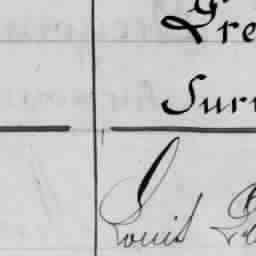 Gre
Sur
Louis